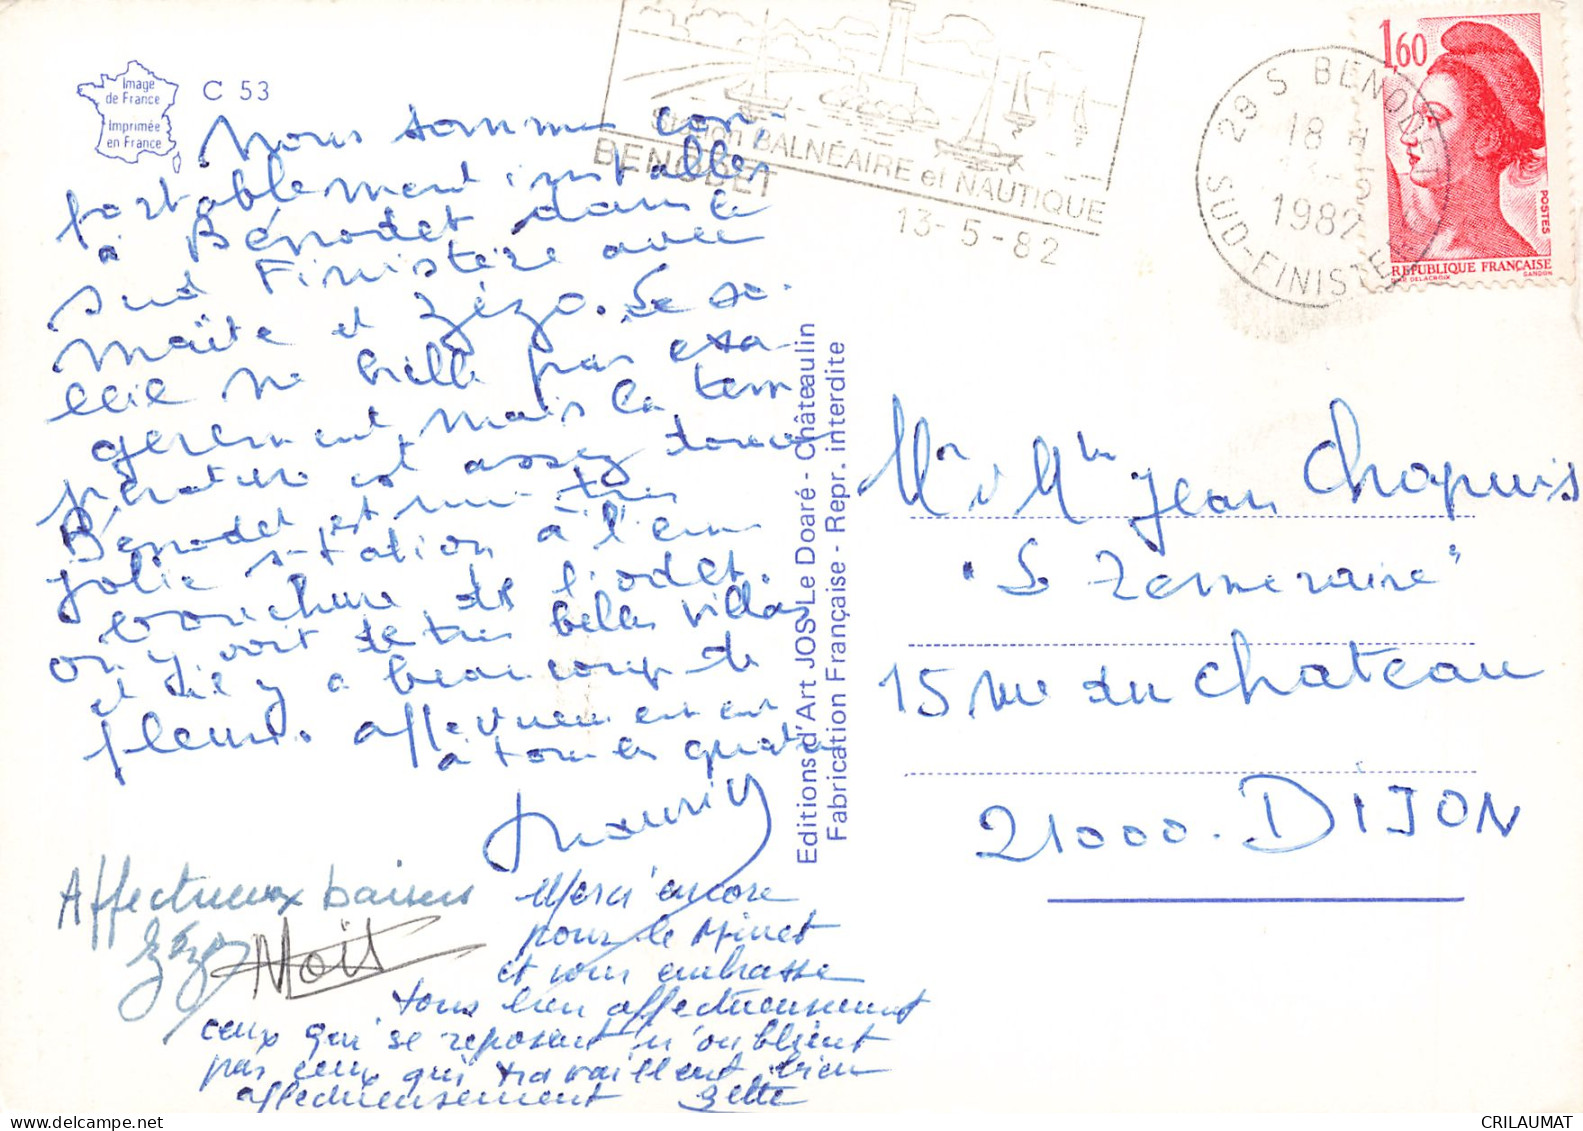 Image
de France
Imprimée
en France
C 53
Nous sommes con-
fortablement installés
à Bénodet dans le
Sud Finistère avec
Maïte et Zézo. Le so-
leil ne brille pas exa-
gerement, mais la tem
pérature est assez douce
Bénodet est une très
jolie station à l'em
bouchure de l'odet.
on y voit de très belles villas
et il y a beaucoup de
fleurs. affectueusement
à tous les quatre
Affectueux baisers
Zézo
Merci encore
pour le Minet
et vous embrasse
tous bien affectueusement
ceux qui se reposent n'oublient
pas ceux qui travaillent bien
affectueusement Zette
Editions d'Art JOS Le Doaré - Châteaulin
Fabrication Française - Repr. interdite
Station BALNÉAIRE et NAUTIQUE
BENODET
13-5-82
29 S BENODET
18 H
13-5
1982
SUD-FINISTERE
1,60
POSTES
REPUBLIQUE FRANÇAISE
D'AP. DELACROIX
GANDON
Mr & Mme Jean Chapuis
"Le Temeraire"
15 rue du Chateau
21000. DIJON
CRILAUMAT